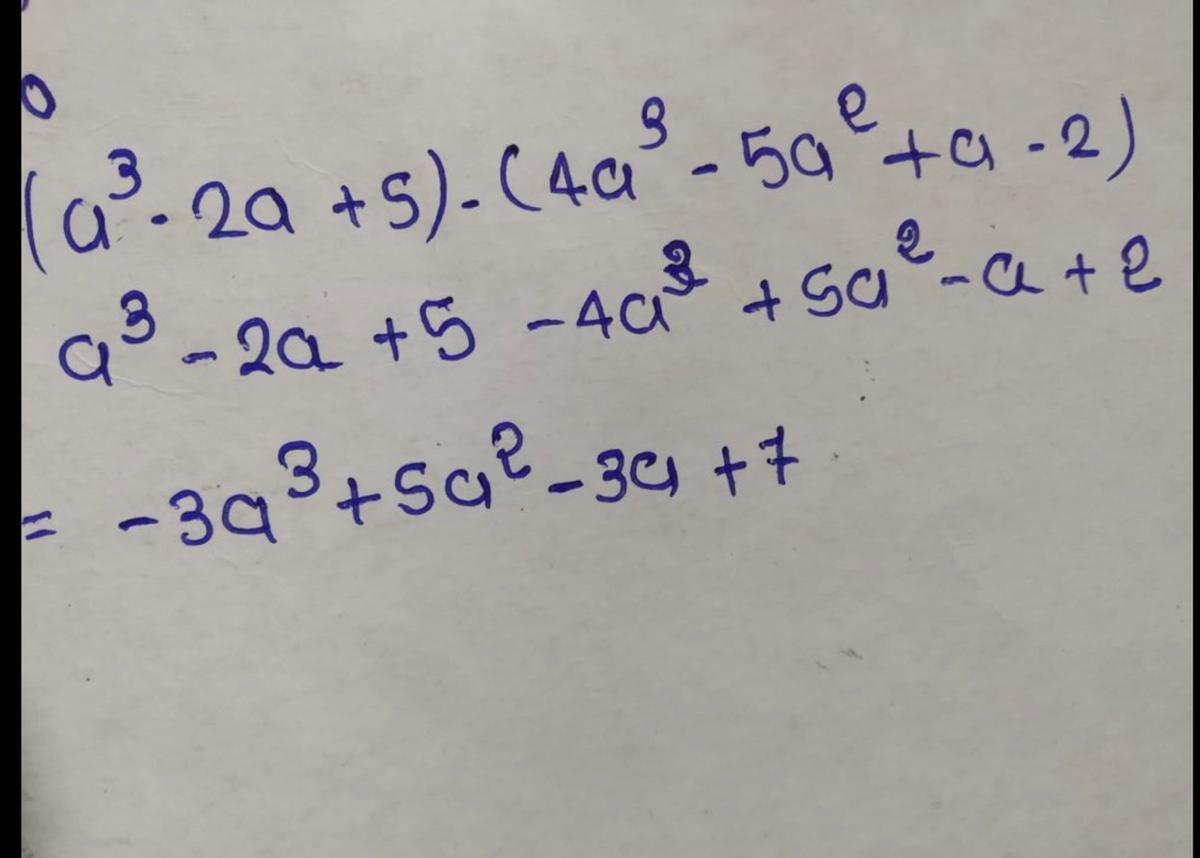 (a³ - 2a + 5) - (4a³ - 5a² + a - 2)
a³ - 2a + 5 - 4a³ + 5a² - a + 2
= -3a³ + 5a² - 3a + 7